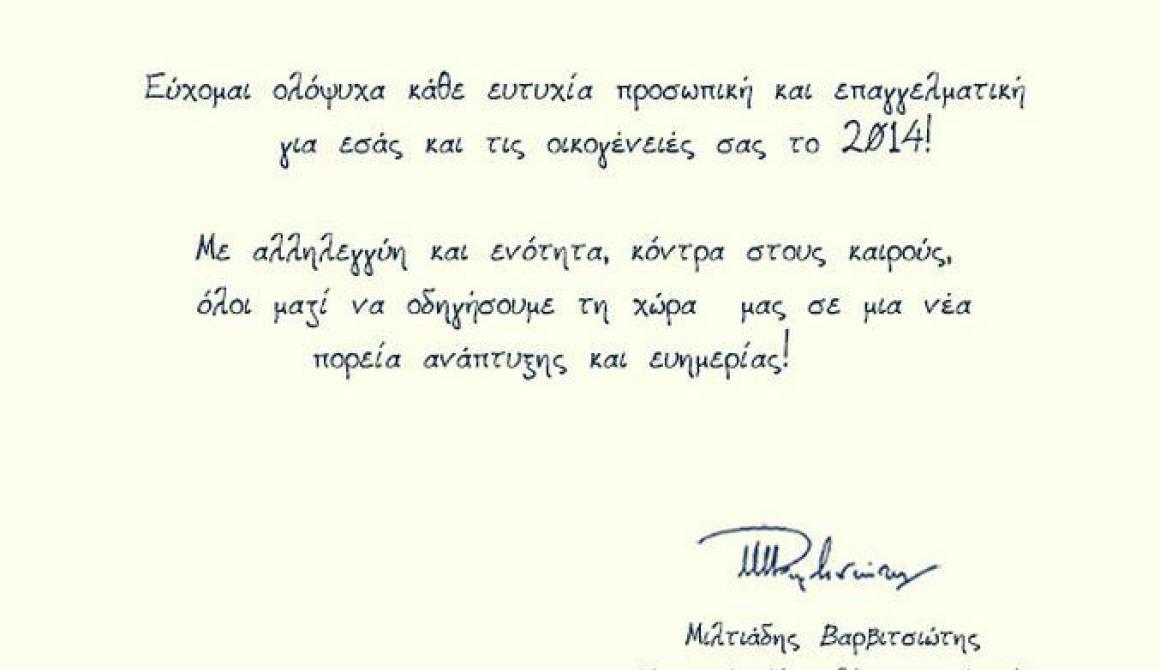 Εύχομαι ολόψυχα κάθε ευτυχία προσωπική και επαγγελματική
για εσάς και τις οικογένειές σας το 2014!
Με αλληλεγγύη και ενότητα, κόντρα στους καιρούς,
όλοι μαζί να οδηγήσουμε τη χώρα μας σε μια νέα
πορεία ανάπτυξης και ευημερίας!
Μιλτιάδης Βαρβιτσιώτης